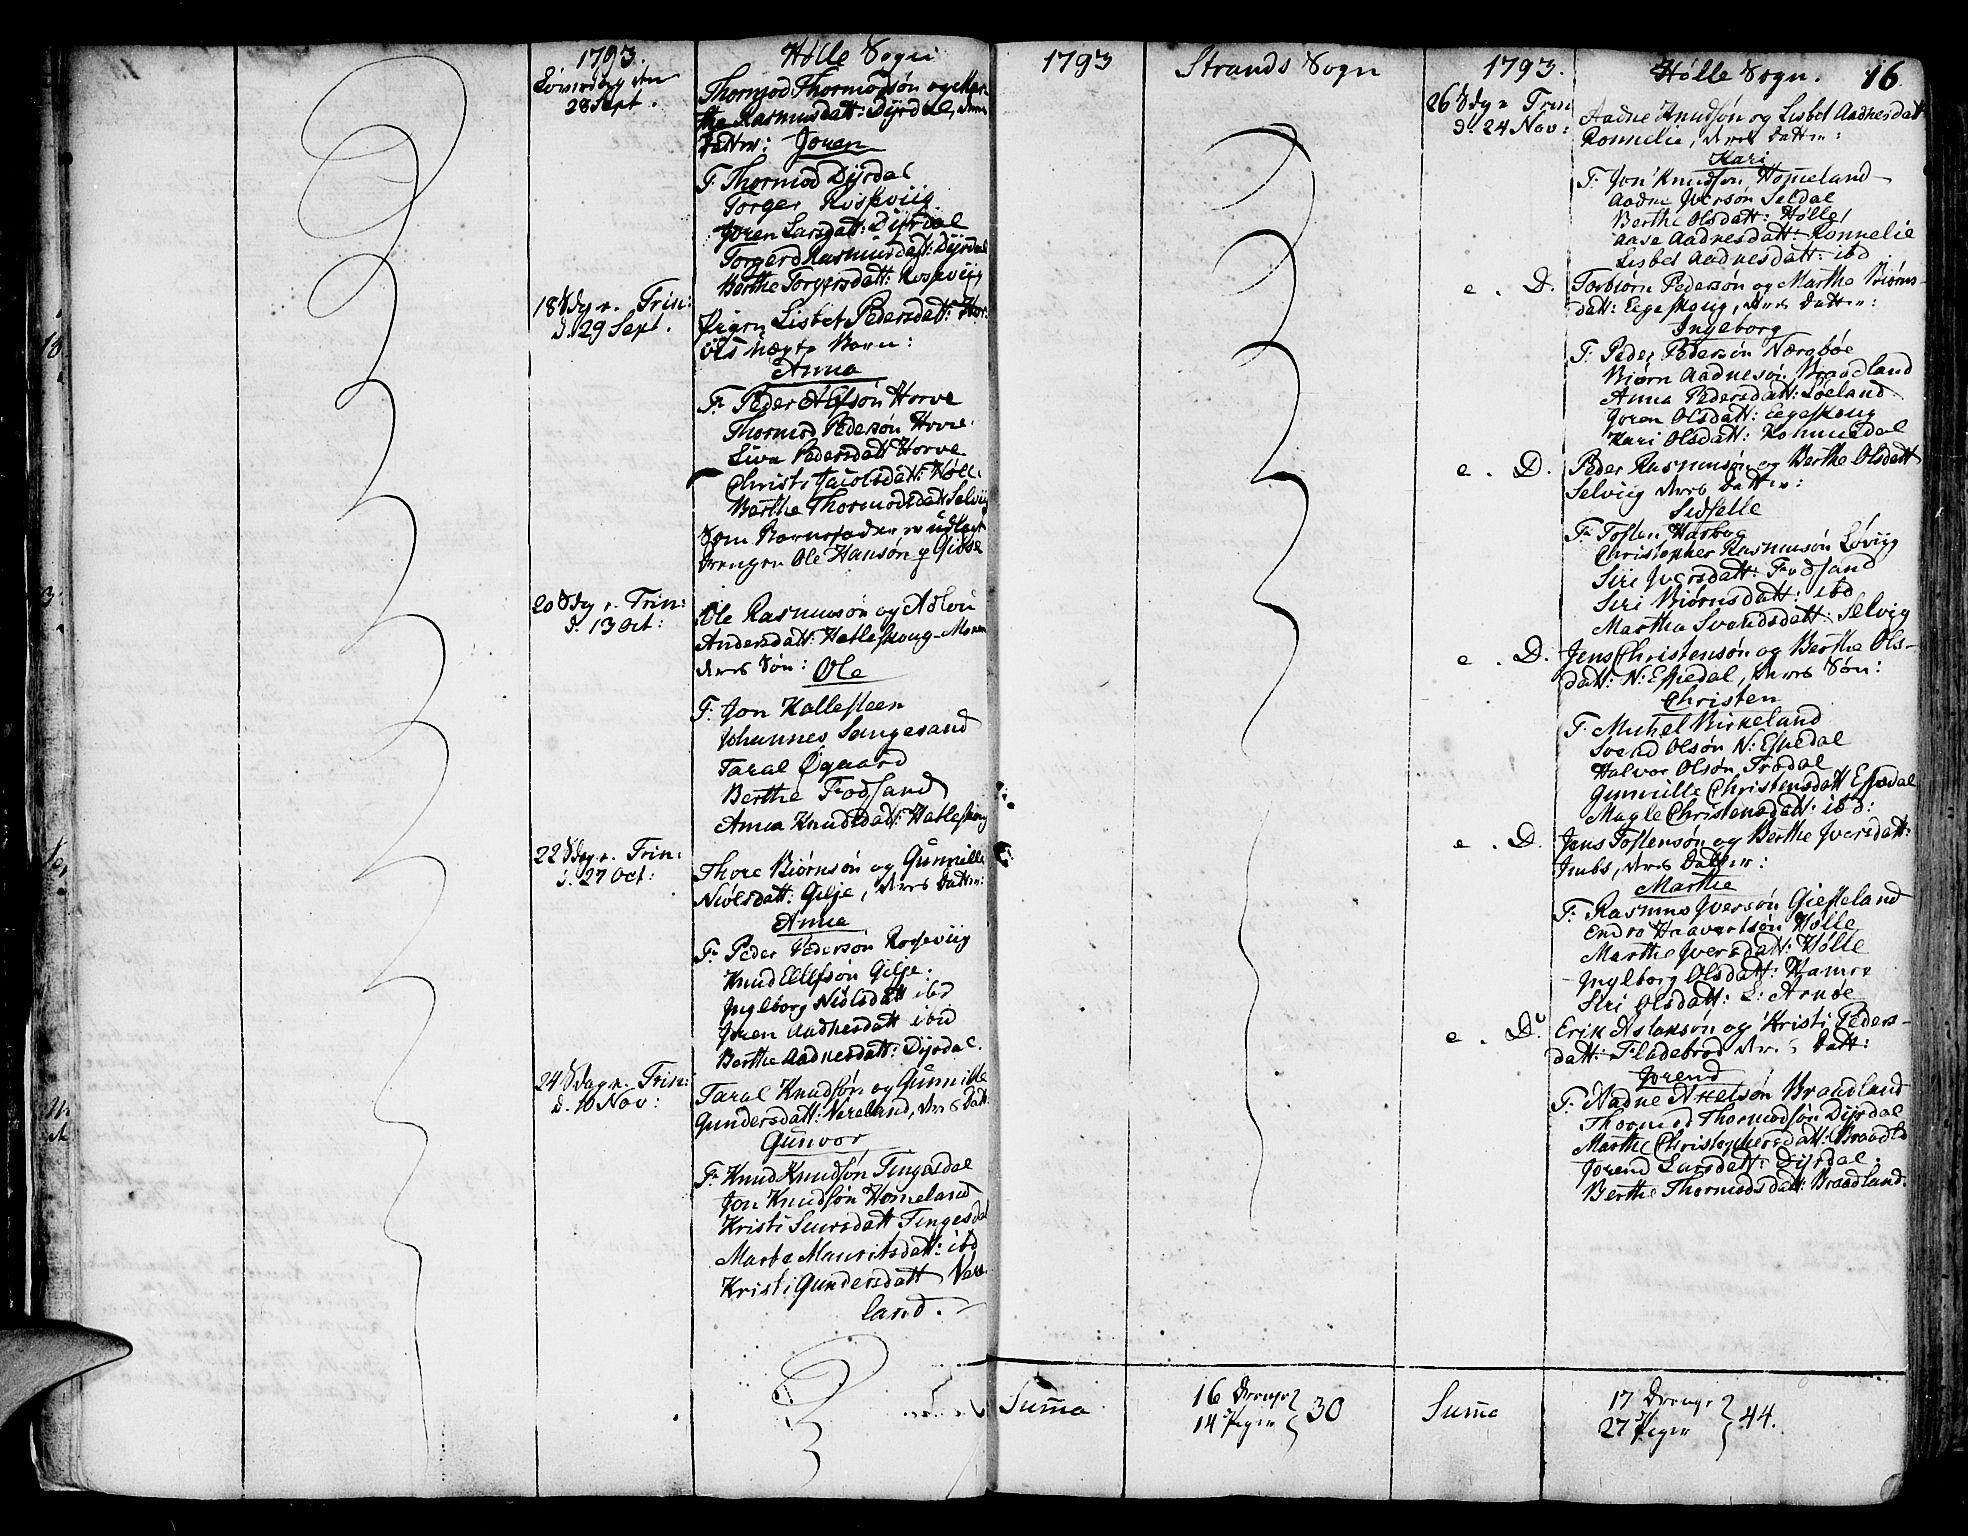 1793.
Hølle Sogn
Løverdag den
28 Sept.
Thormod Thormodsøn og Mar-
the Rasmusdatt: Dÿrdal, deres
datter: Joren
F. Thormod Dÿrdal
Torger Rossviig
Joren Larsdatt: Dÿrdal
Torgerd Rasmusdatt: Dÿrdal
Berthe Torgersdatt: Rossviig
18 Sdg e. Trin:
d. 29 Sept.
Pigen Lisbet Pedersdatt:
uægte Barn:
Anna
F. Peder Horve
Thormod Pedersøn Horve
Siva Pedersdatt Horve
Christi Jacobsdatt: Hølle
Berthe Thormodsdatt Selviig
Som Barnefader er udlagt
Drengen Ole Hansøn
20 Sdg e. Trin:
d. 13 Oct:
Ole Rasmusøn og
Andersdatt: Hatleskoug
deres Søn: Ole
F. Jon Hallesteen
Johannes Songesand
Taral Øgaard
Berthe Fodsand
Anna Knudsdatt: Hatleskoug
22 Sdg e. Trin:
d. 27 Oct:
Thore Biørnsøn og Gunnille
Niølsdatt: Gilje, deres Datter:
Anna
F. Peder Pedersøn Rosseviig
Knud Ellefsøn Gilje:
Jngeborg Niølsdatt ibd
Joren Aadnesdatt ibid
Berthe Aadnesdatt: Dÿrdal.
24 Sdag e. Trin:
d. 10 Nov:
Taral Knudsøn og Gunnille
Gundersdatt: Væreland, deres Datt:
Gunvor
F. Knud Knudsøn Tingesdal
Jon Knudsøn Homeland
Kristi Siursdatt Tingesdal
Marte Mauritsdatt: ibd
Kristi Gundersdatt Være-
land.
1793
Strands Sogn
1793.
Hølle Sogn.
16
26 Sdg e Trin
d. 24 Nov:
Aadne Knudsøn og Lisbet Aadnesdatt
Ronnelie, deres datter:
Kari
F. Jon Knudsøn Homeland
Aadne Jversøn Seldal
Berthe Olsdatt: Hølle
Aase Aadnesdatt: Ronnelie
Lisbet Aadnesdatt: ibd.
e. D.
Torbiørn Pedersøn og Marthe Biørns-
datt: Eigeskoug, deres datter:
Ingeborg
F. Peder Pedersøn Nærgbøe
Biørn Aadnesøn Braadland
Anna Pedersdatt: Løeland
Joren Olsdatt: Eegeskoug
Kari Olsdatt: Kommedal
e. D.
Peder Rasmusøn og Berthe Olsdatt
Selviig deres datter:
Sidselle
F. Tosten Hasbog
Christopher Rasmusøn Løviig
Siri Jversdatt: Fodsand
Siri Biørnsdatt: ibd
Martha Svendsdatt: Selvig
e. D.
Jens Christensøn og Berthe Ols-
datt: N: Espedal, deres Søn:
Christen
F. Michel Birkeland
Svend Olsøn N: Espedal
Halvor Olsøn Frødal
Gunnille Christensdatt Espedal
Magle Christensdatt: ibd:
e. D.
Jens Tostensøn og Berthe Jversdatt:
Jmbs, deres Datter:
Marthe
F. Rasmus Jversøn Giesteland
Endre Haavortsøn Hølle
Marthe Jversdatt: Hølle
Jngeborg Olsdatt: Hamre
Siri Olsdatt: L: Arnøe
e. D.
Erik Aslaksøn og Kristi Peders-
datt: Fladebrod deres Datt:
Jorend
F. Aadne Axelsøn Braadland
Thormod Thormodsøn Dÿrdal
Marthe Christophersdatt: Braadld
Jorend Larsdatt: Dÿrdal.
Berthe Thormodsdatt: Braadland.
Suma
16 Drenge
14 Piger
30
Suma
17 Drenge
27 Piger
44.